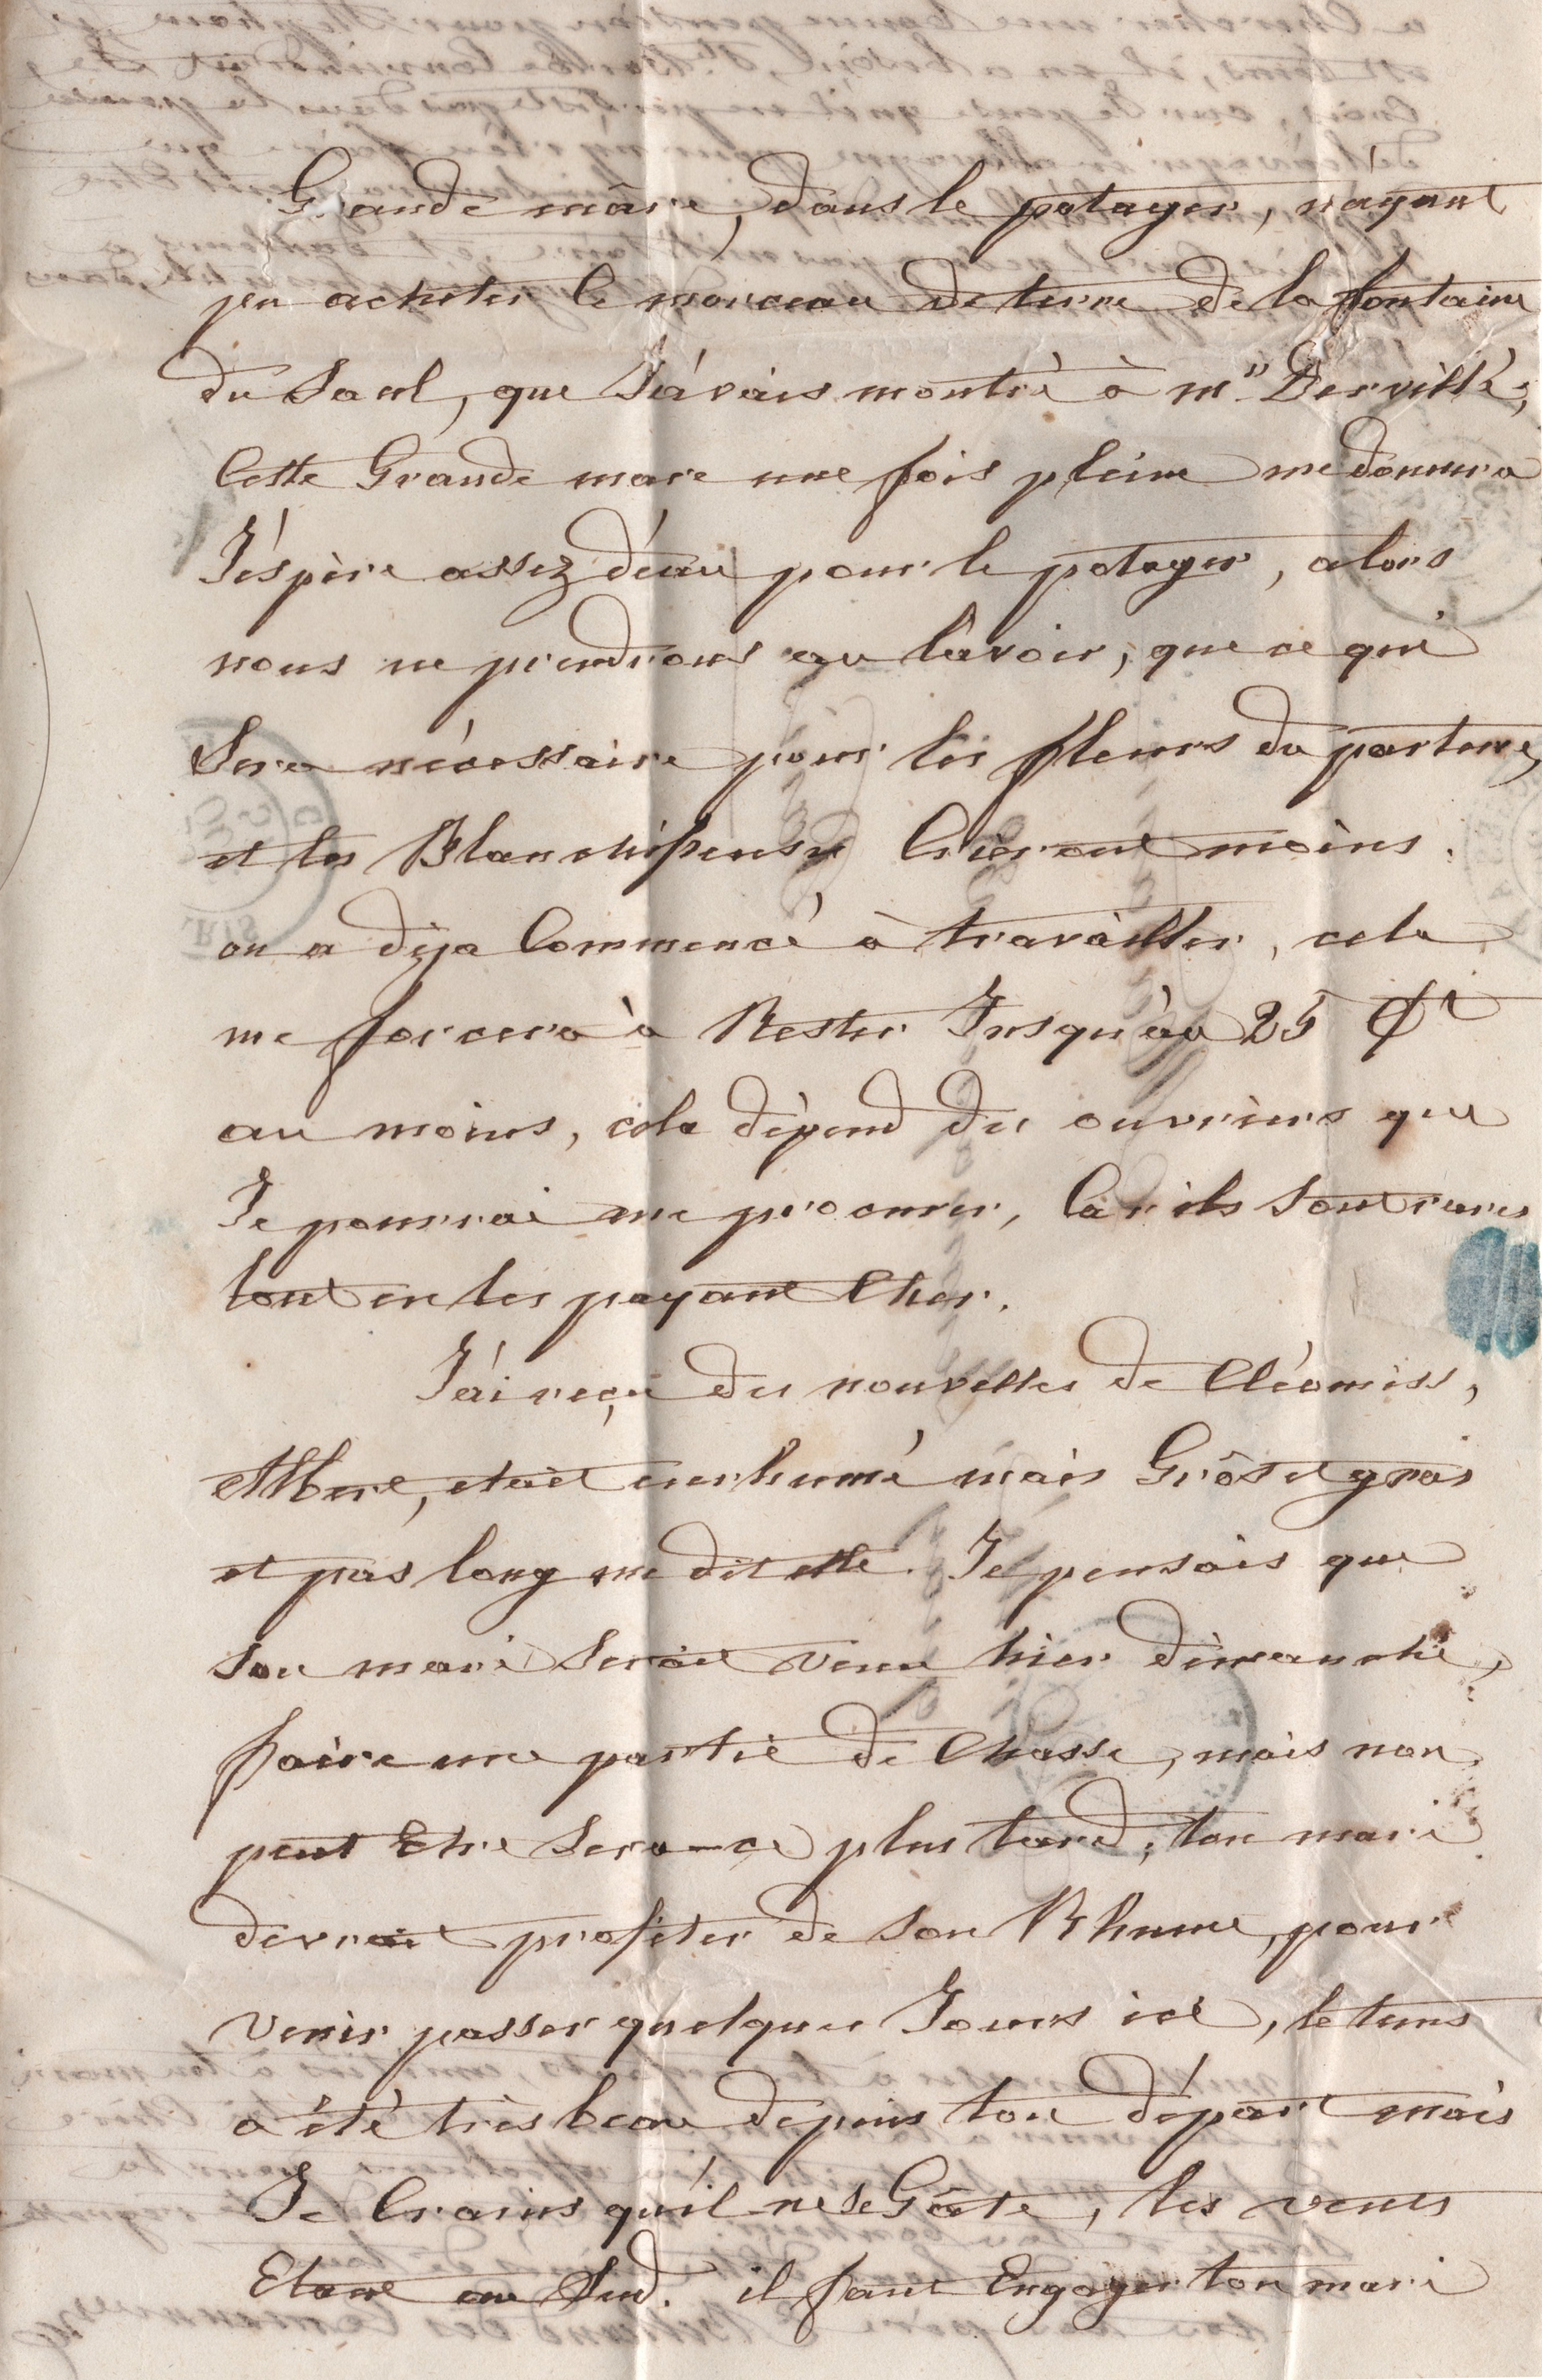 Grande mâre, dans le potager, n'ayant
pu acheter le morceau de terre de la fontaine
du Saul, que J'avais montré à mr Dervillé,
Cette Grande mare une fois pleine me donnera
J'éspère assez d'éau pour le potager, alors
nous ne prendrons au lavoir, que ce qui
Sera nécessaire pour les fleurs du parterre,
et les Blanchisseuses Crieront moins.
on a dèja Commencé à travailler, cela
me forcera à Rester Jusqu'au 25
au moins, cela dépend des ouvriers que
Je pourrai me procurer, Car ils Sont rares
tout en les payant Cher.
J'ai reçu des nouvelles de Cléomiss,
Albert, etait enrhumé mais Grôs et gras
et pas long me dit elle. Je pensais que
Son mari Serait venu hier dimanche,
faire une partie de Chasse, mais non
peut Etre Sera-ce plus tard, ton mari
devrait profiter de Son Rhume, pour
venir passer quelques Jours ici, le tems
a été très beau depuis ton départ mais
Je Crains qu'il ne Se Gâte, les vents
Etant au Sud. il faut Engager ton mari